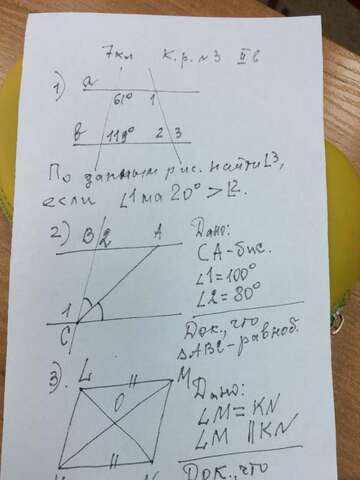 7кл К.р. №3 II в
1) a
61° 1
в 119° 2 3
По данным рис. найти ∠3,
если ∠1 на 20° > ∠2.
2) B 2 A
1
C
Дано:
CA-бис.
∠1=100°
∠2=80°
Док., что
△ABC-равноб.
3). L M
O
Дано:
LM=KN
LM ∥KN
Док., что